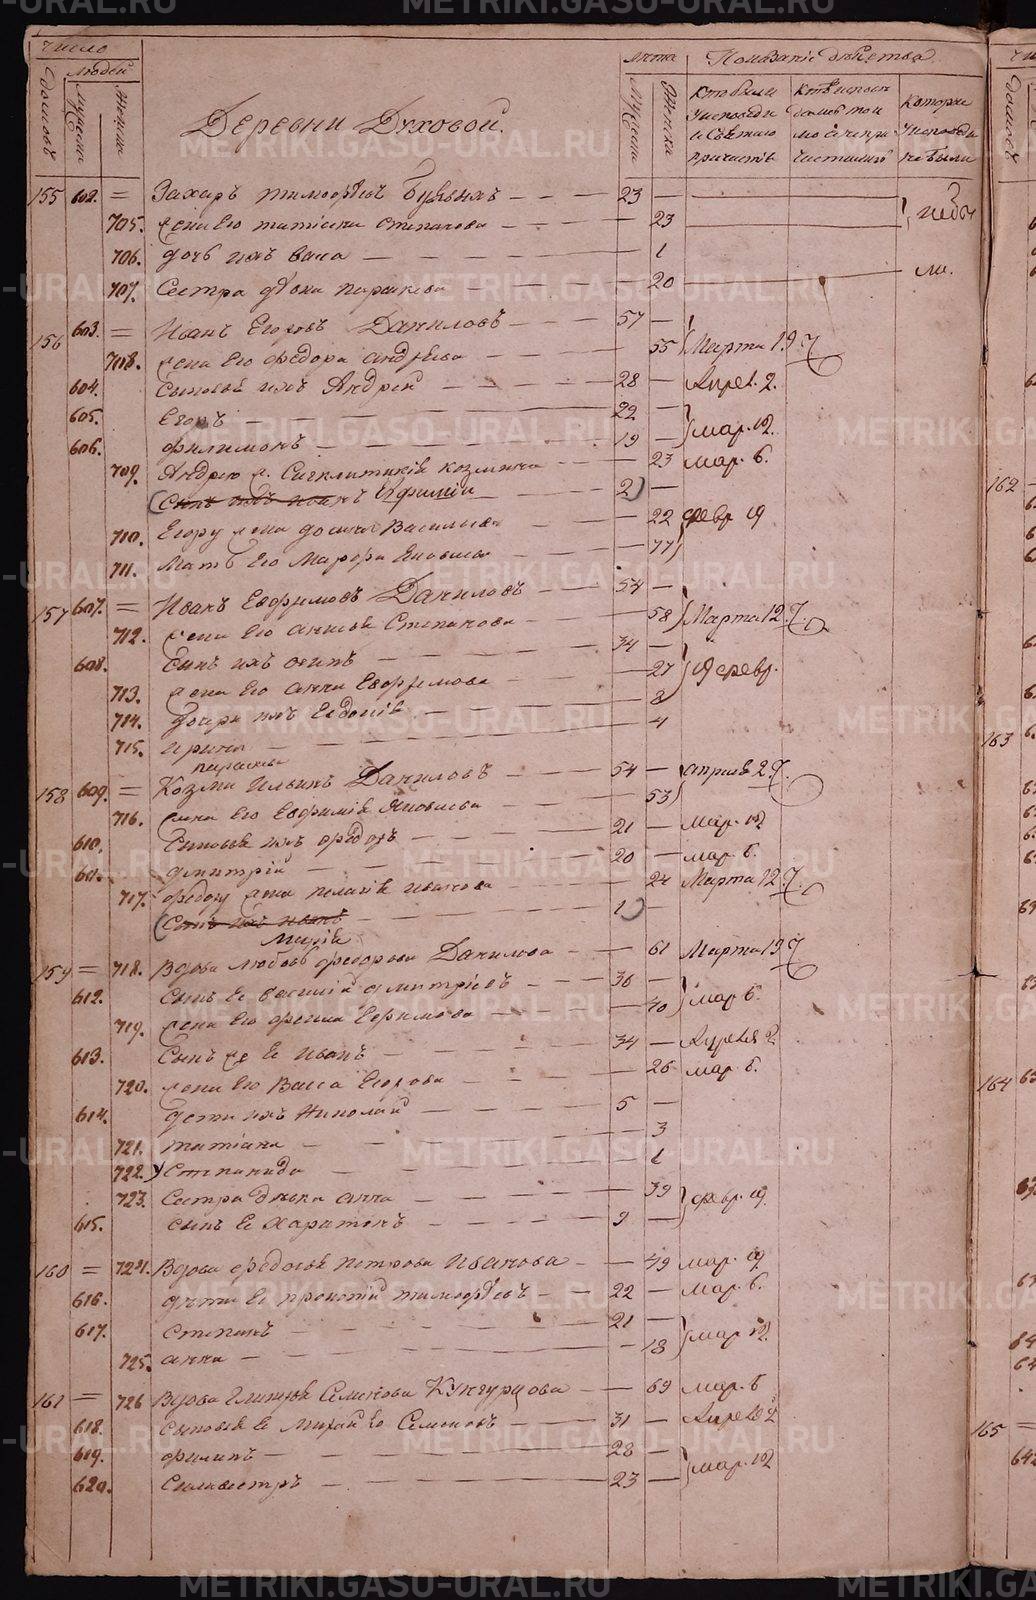 Число
людей
домовъ
Мужска
Женска
Деревни Духовой.
Лѣта
Мужска
Женска
Показаніе дѣйства
кто были у исповѣди и Святаго причастія
кто исповѣдалися токмо а не причастились
которые у исповѣди не были
155 602. = Захаръ тимофѣевъ 23 —
705. жена Его татіана степанова — 23
небы
706. дочь ихъ васса — 1
707. Сестра дѣвка параскева — 20
ли.
156 603. = Иванъ Егоровъ Даниловъ — 57 —
708. жена Его федора андрѣева — 55 Марта 19
604. Сыновья ихъ Андрей — 28 — Апрел. 2.
605. Егоръ — 22 —
606. филимонъ — 19 — мар. 12.
709. Андрею ж. Сигклитикія козмина — 23 мар. 6.
Сынъ ихъ иванъ Ефимій — 2 —
710. Егору жена досифея Васильева — 22 февр 19
711. Мать Его Марфа Яковлева — 77
157 607. = Иванъ Евфимовъ Даниловъ — 54 —
712. жена Его анисья Степанова — 58 Марта 12.
608. Сынъ ихъ осипъ — 34 —
713. жена Его анна Евфимова — 27 19 февр.
714. дочери ихъ Евдокія — 8
715. ирина — 4
158 609. = Козма Ильинъ Даниловъ — 54 — априля 2
716. жена Его Евфимія Яковлева — 53
610. Сыновья ихъ федоръ — 21 — мар. 12
611. дмитрій — 20 — мар. 6.
717. федору жена пелагія иванова — 24 Марта 12.
Сынъ ихъ иванъ 1
Марія
159 = 718. Вдова любовь федорова Данилова — 61 Марта 19
612. Сынъ Ее василій дмитріевъ — 36 —
719. жена Его фекла Ефимова — 40 мар 6.
613. Сынъ же Ее иванъ — 34 — Апреля 2
720. жена Его Васса Егорова — 26 мар. 6.
614. дети ихъ Николай — 5 —
721. татіана — 3
722. Степанида — 1
723. Сестра дѣвка анна — 39
615. сынъ Ее Харитонъ — 9 — февр. 19.
160 = 724. Вдова федосья петрова Иванова — 49 мар. 19.
616. дѣти Ее прокопій тимофѣевъ — 22 — мар. 6.
617. степанъ — 21 —
725. анна — 18 мар 12.
161 = 726 Вдова гликерія Семенова Кунгурцова — 69 мар. 6
618. Сыновья Ее Михайло Семеновъ — 31 — Апреля 2
619. филипъ — 28 —
620. Сильвестръ — 23 — мар. 12
162
163
164
165
METRIKI.GASO-URAL.RU